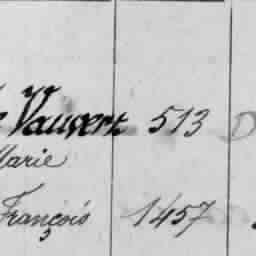 Vauvert 513
Marie
François 1457